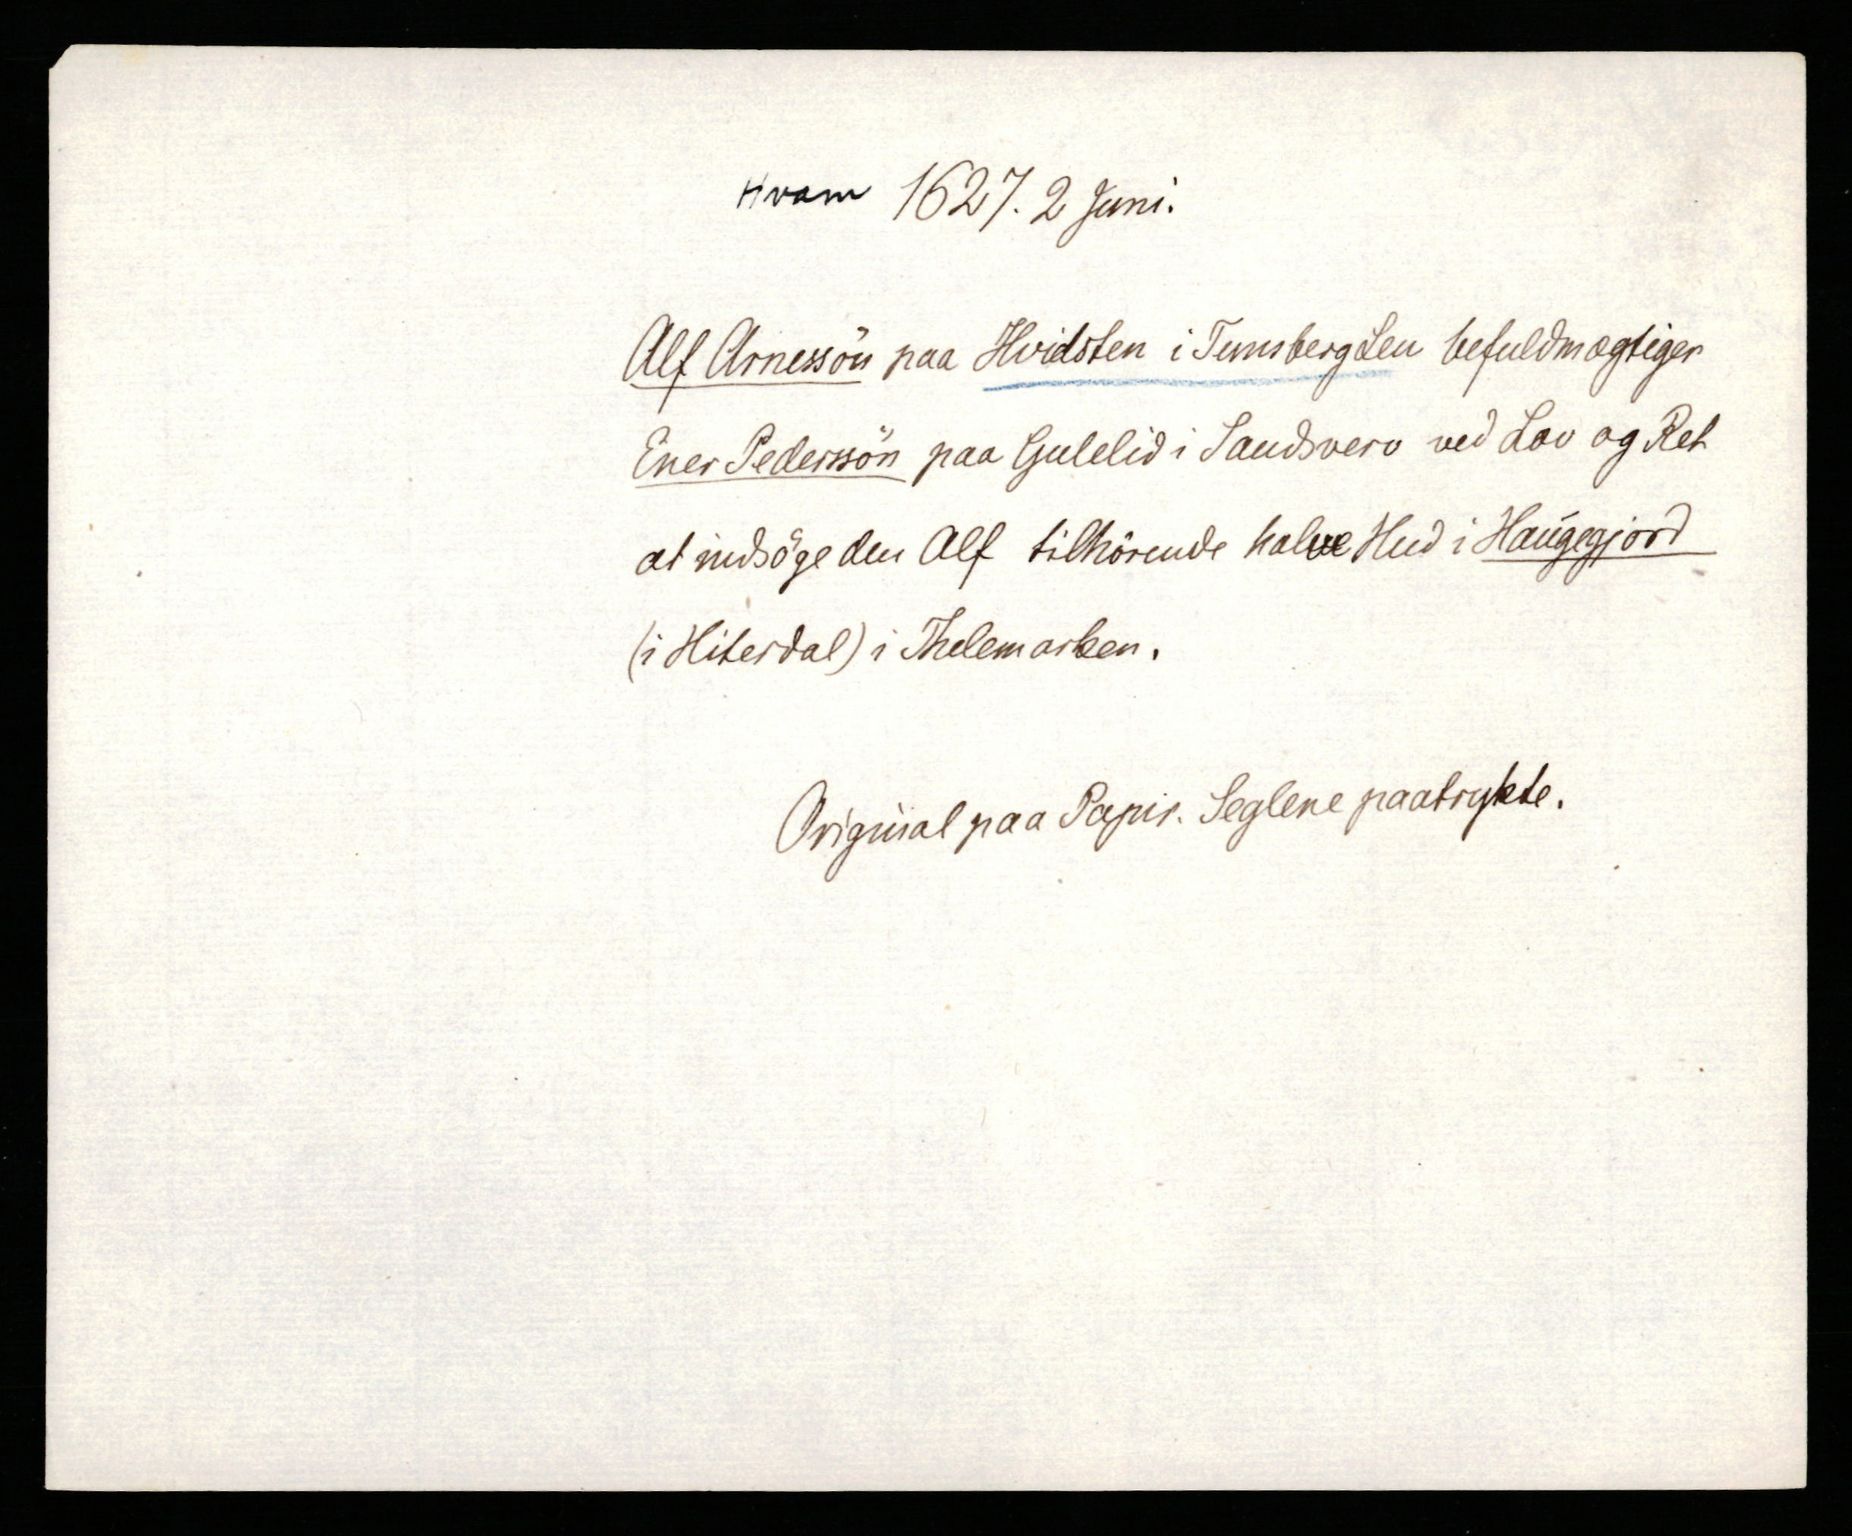 Hvam 1627. 2 Juni.
Alf Arnessön paa Hvidsten i Tunsberg Len befuldmægtiger
Ener Pederssön paa Gulelid i Sandsverv ved Lov og Ret
at indsöge den Alf tilhörende halve Hud i Haugegjord
(i Hiterdal) i Thelemarken.
Original paa Papir. Seglene paatrykte.